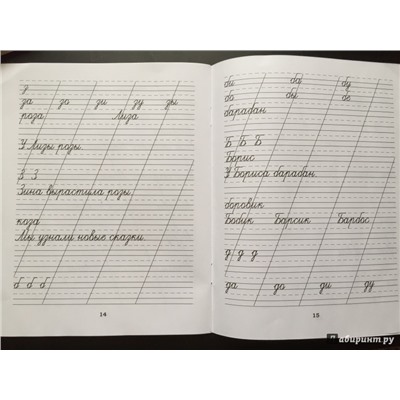 з
за зо зи зу зы
роза Лиза
У Лизы розы.
З З
Зина вырастила розы.
коза
Мы узнали новые сказки.
б б б
14
бы ба бу
бо бы бе
барабан
Б Б Б
Борис
У Бориса барабан.
боровик
Бобик Барсик Барбос
д д д
да до ди ду
15
Лабиринт.ру